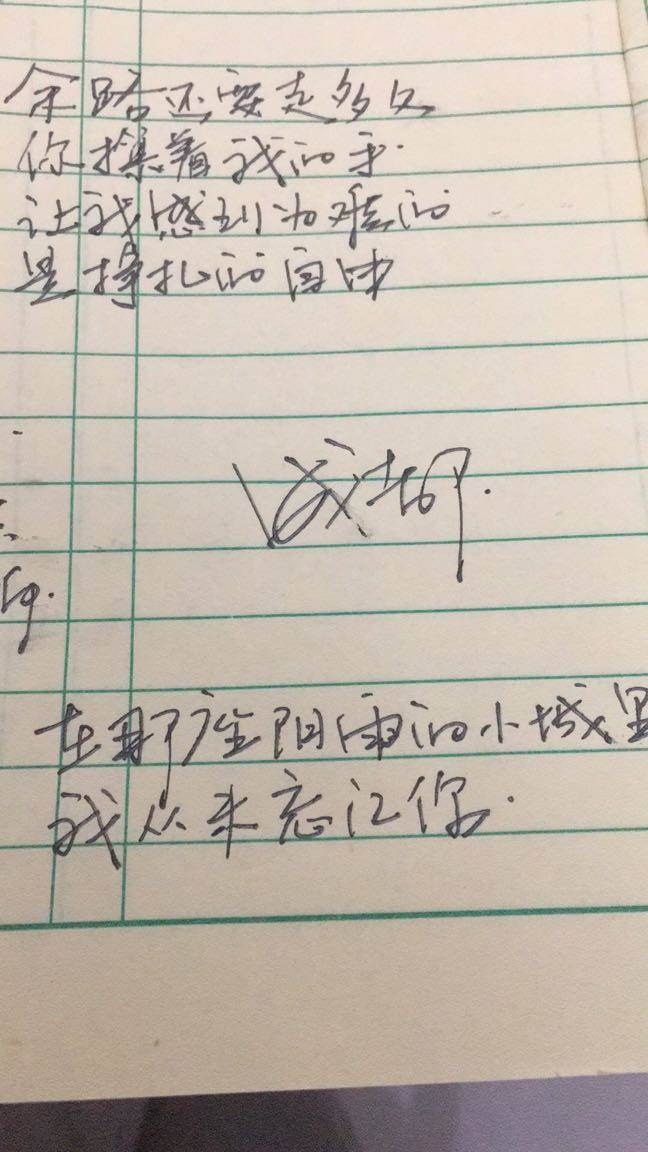 余路还要走多久
你攥着我的手.
让我感到为难的
是挣扎的自由
成都.
在那座阴雨的小城里
我从未忘记你.